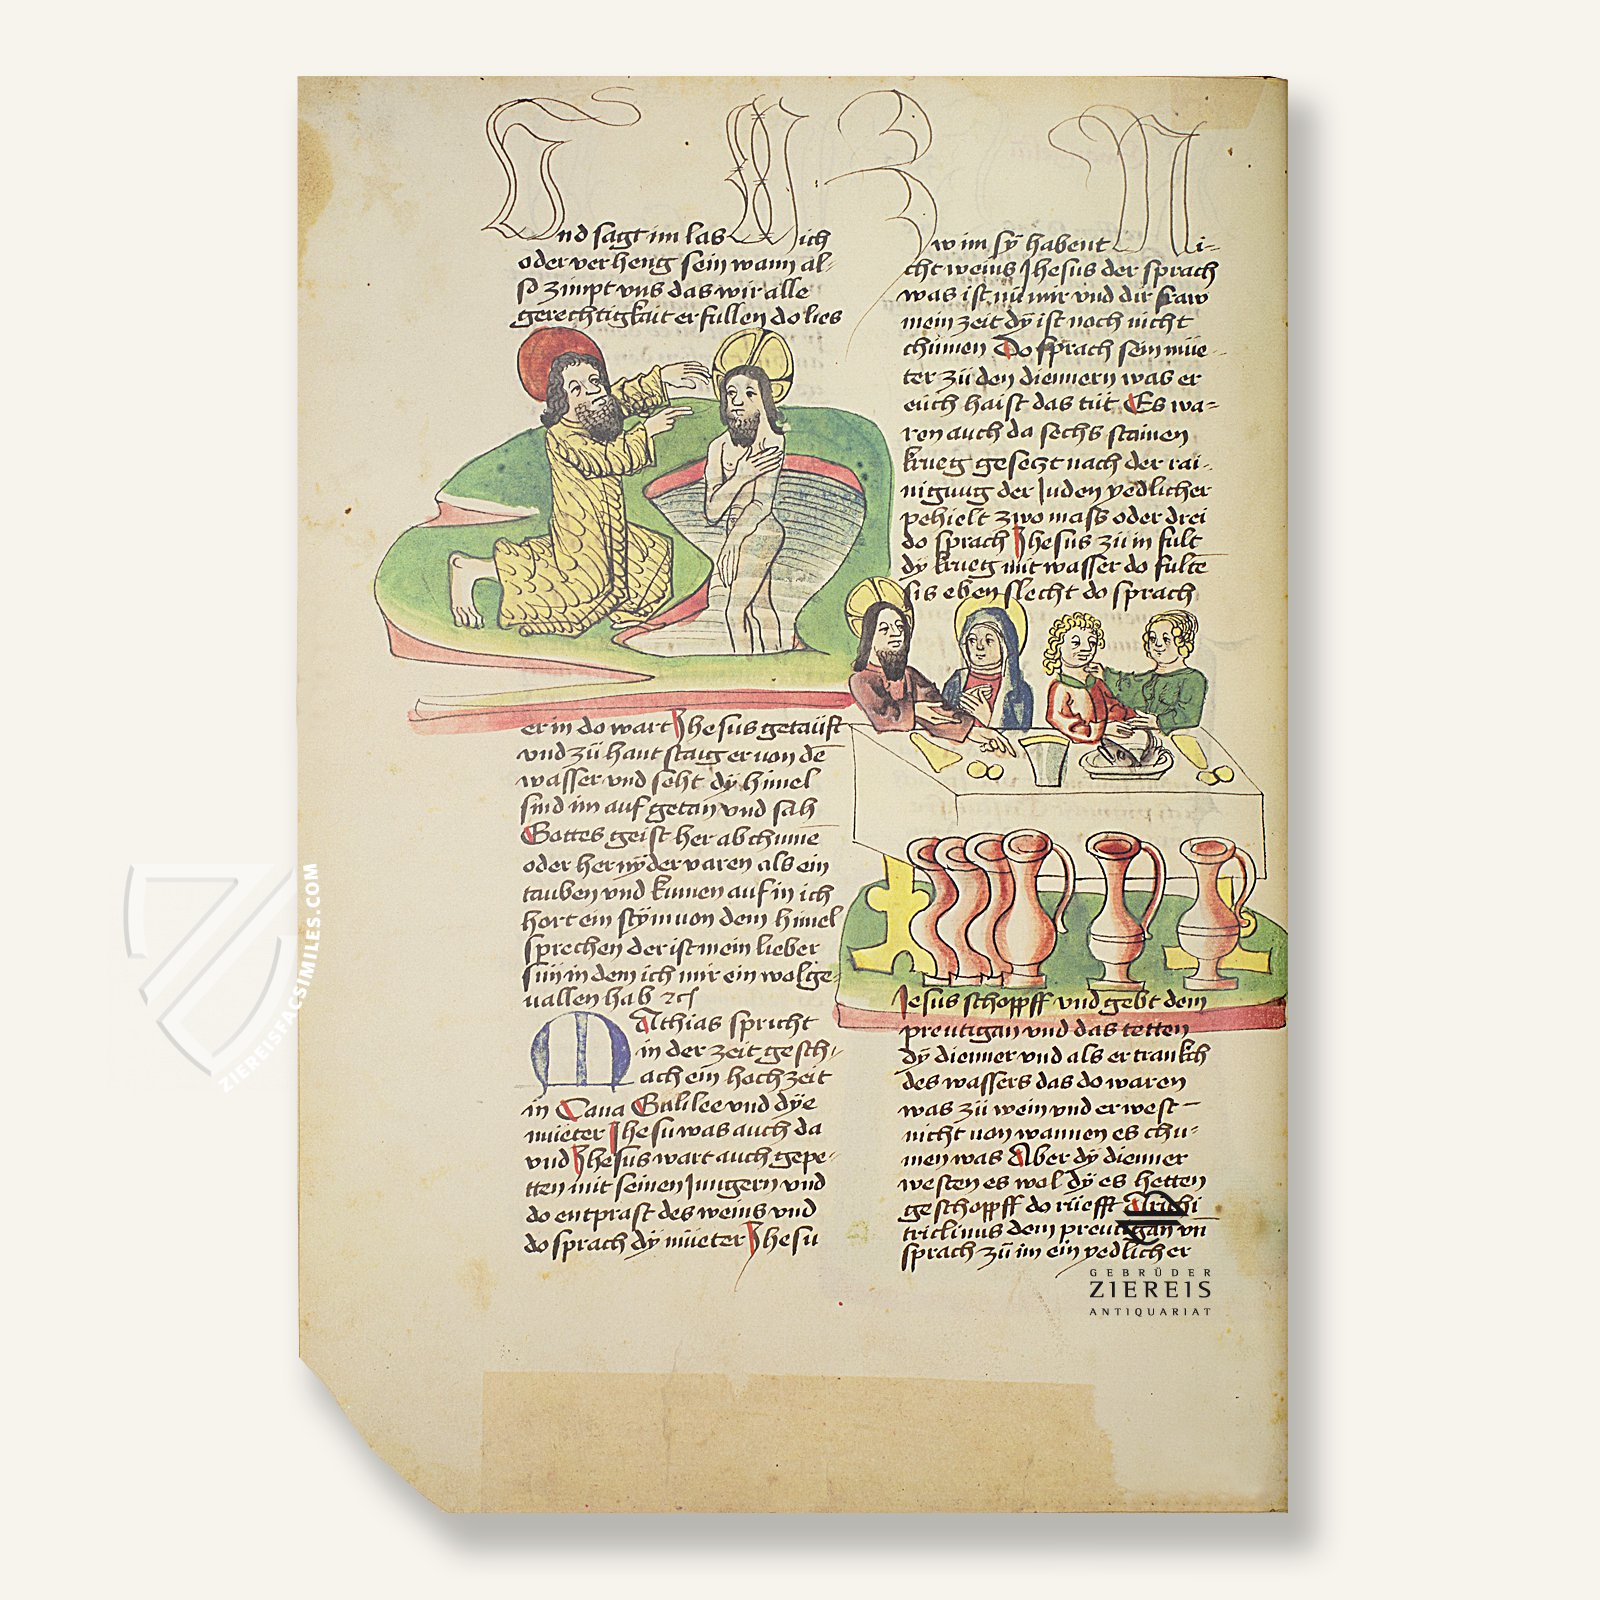 Und sagt im las Mich
oder verheng sein wann al-
so zimpt vns das wir alle
gerechtigkait erfullen do lies
er in do wart Jhesus getaüft
vnd zü hant staig er von dē
wasser vnd seht dÿ himel
sind im auf getan vnd sah
Gottes geist her ab chume
oder her nyder varen als ein
tauben vnd kumen auf in ich
hort ein stÿm von dem himel
sprechen der ist mein lieber
sün in dem ich mir ein wolge-
uallen hab
Mathias spricht
in der zeit gesch-
ach ein hochzeit
in Cana Galilee vnd dÿe
müeter Jhesu was auch da
vnd Jhesus wart auch gepe-
tten mit seinen Jungern vnd
do entprast des weins vnd
do sprach dÿ müeter Jhesu
zw im sÿ habent Ni-
cht weins Jhesus der sprach
was ist nü mir vnd dir fraw
mein zeit dÿ ist noch nicht
chümen Do sprach sein müe-
ter zü den diennern was er
eüch haist das tüt Es wa-
ren auch da sechs stainen
krueg geseczt nach der rai-
nigung der Juden yedlicher
pehielt zwo mass oder drei
do sprach Jhesus zü in fult
dÿ krueg mit wasser do fultē
sis eben slecht do sprach
Jesus schopff vnd gebt dem
preutigan vnd das tetten
dÿ dienner vnd als er trankch
des wassers das do waren
was zü wein vnd er west
nicht uon wannen es chu-
men was Aber dÿ dienner
westen es wol dÿ es hetten
geschopff do rüefft Archi
triclinus dem preutigan vn̄
sprach zü im ein yedlicher
GEBRÜDER
ZIEREIS
ANTIQUARIAT
ZIEREISFACSIMILES.COM